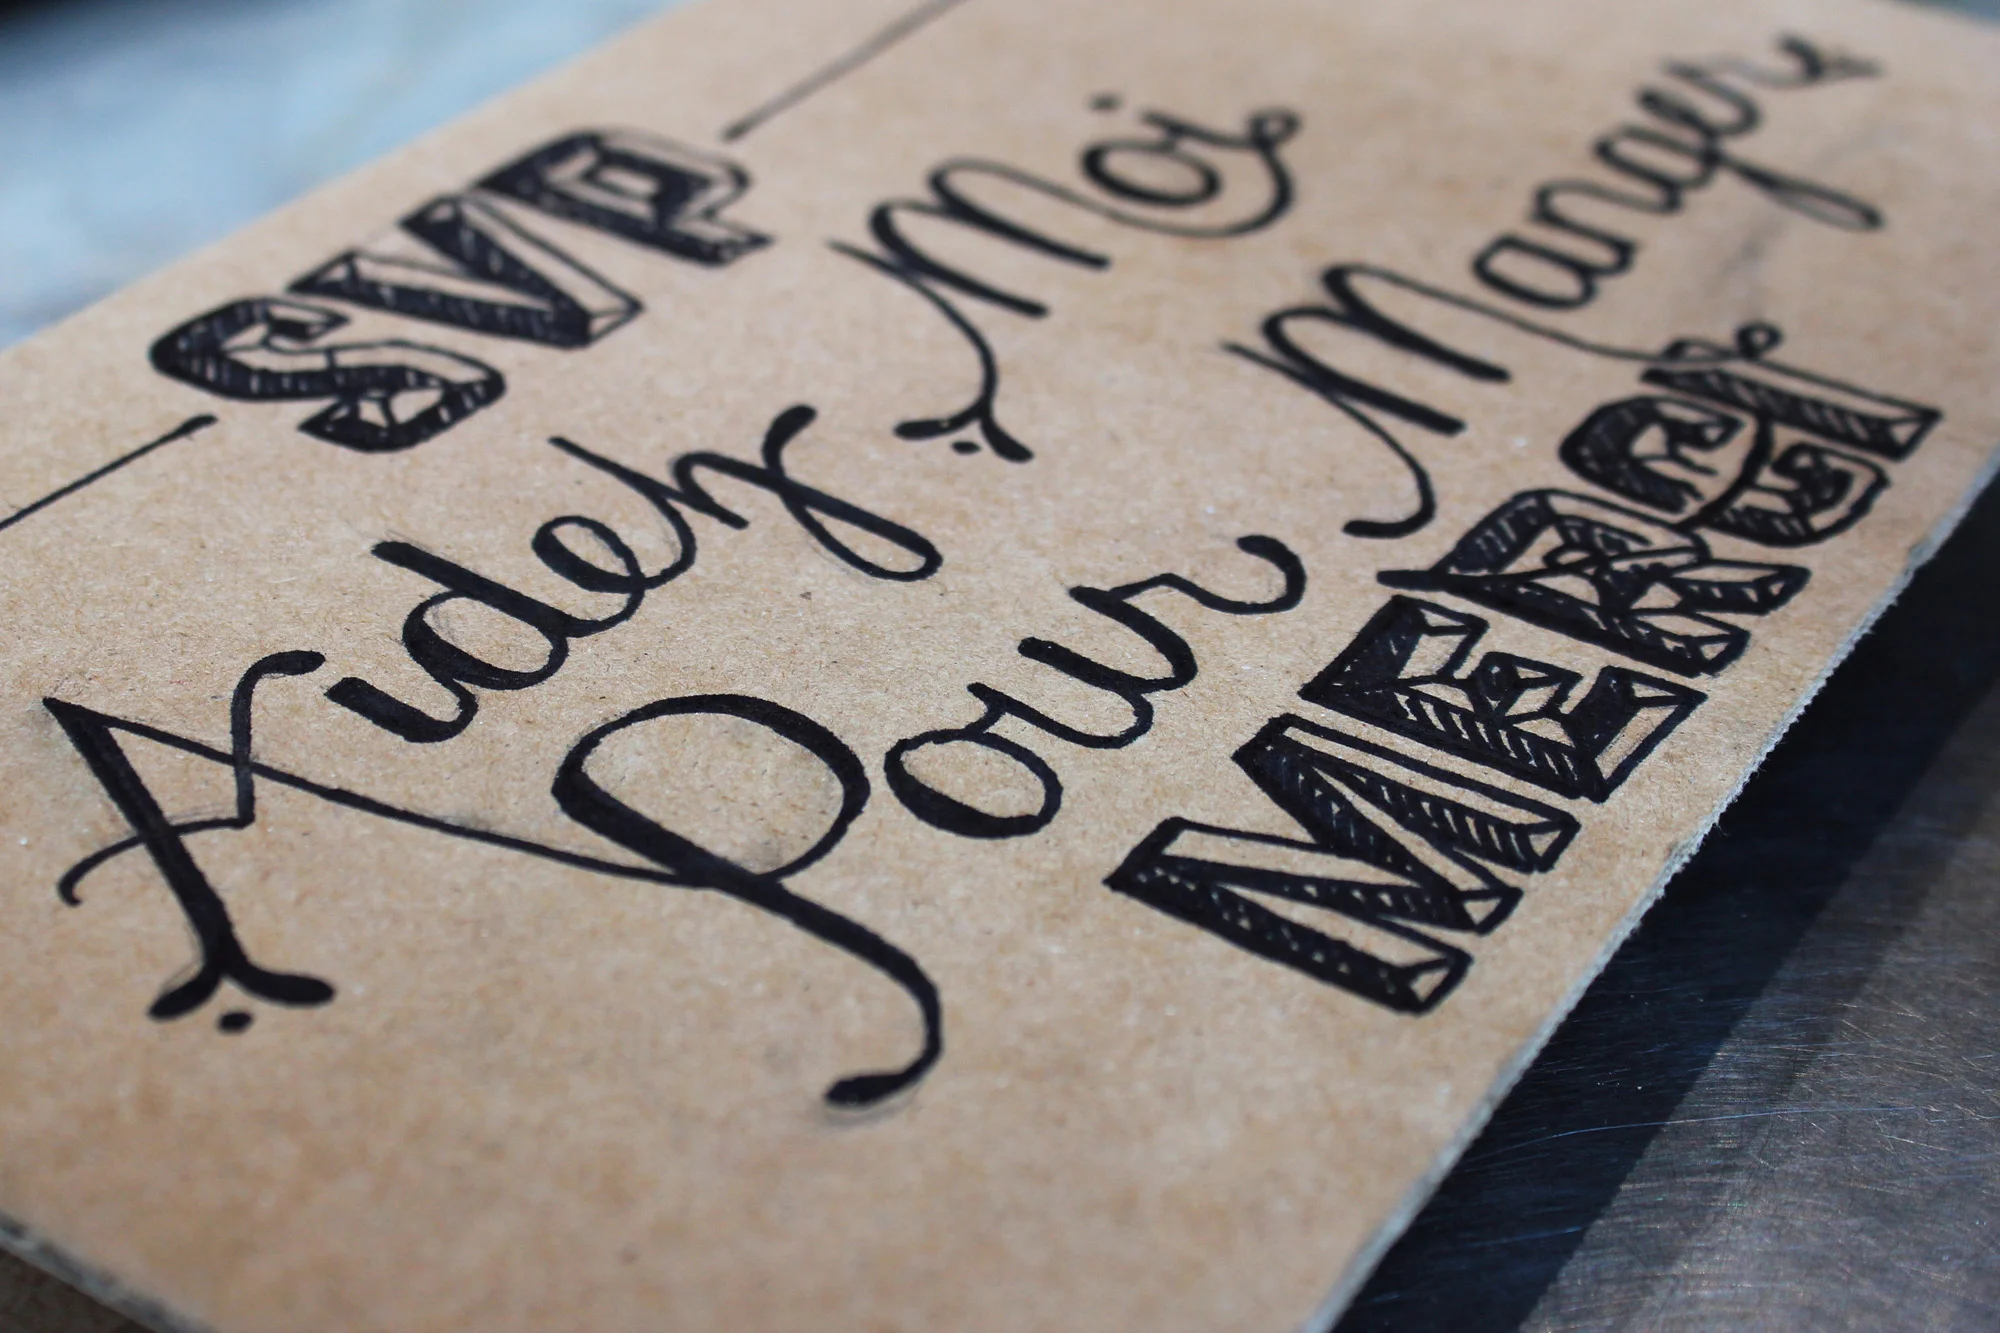 SVP
Aidez Moi
Pour Manger
MERCI